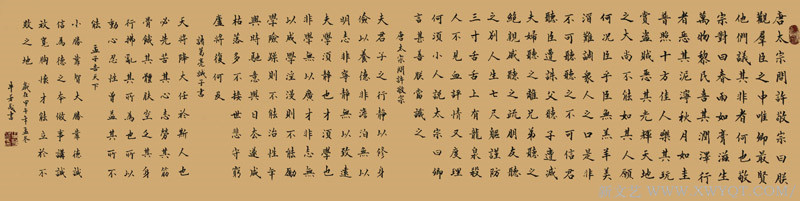 唐太宗問許敬宗曰朕
觀羣臣之中唯卿最賢
他們議其非者何也敬
宗對曰春雨如膏滋生
萬物黎民喜其潤澤行
者惡其泥濘秋月如圭
普照十方佳人樂其玩
賞盜賊惡其光輝天地
之大尚不能如其人願
何況臣乎臣無黑羊美
酒難調衆人之口是非
不可聽聽之不可信君
聽臣遭誅父聽子遭滅
夫婦聽之離兄弟聽之
絕親戚聽之疏朋友聽
之別人生七尺軀謹防
三寸舌舌上有龍泉殺
人不見血評情又度理
何須小人說太宗曰卿
言甚善朕當識之
唐太宗問許敬宗
夫君子之行静以修身
儉以養德非澹泊無以
明志非寧静無以致遠
夫學須静也才須學也
非學無以廣才非志無
以成學淫漫則不能勵
學險躁則不能治性年
與時馳意與日去遂成
枯落多不接世悲守窮
廬將復何及
諸葛亮誡子書
天將降大任於斯人也
必先苦其心志勞其筋
骨餓其體膚空乏其身
行拂亂其所爲也所以
動心忍性曾益其所不
能
孟子告天下
小勝靠智大勝靠德誠
信爲德之本做事講誠
寬胸懷才能立於不
敗之地
歲在甲午年孟冬
敬書